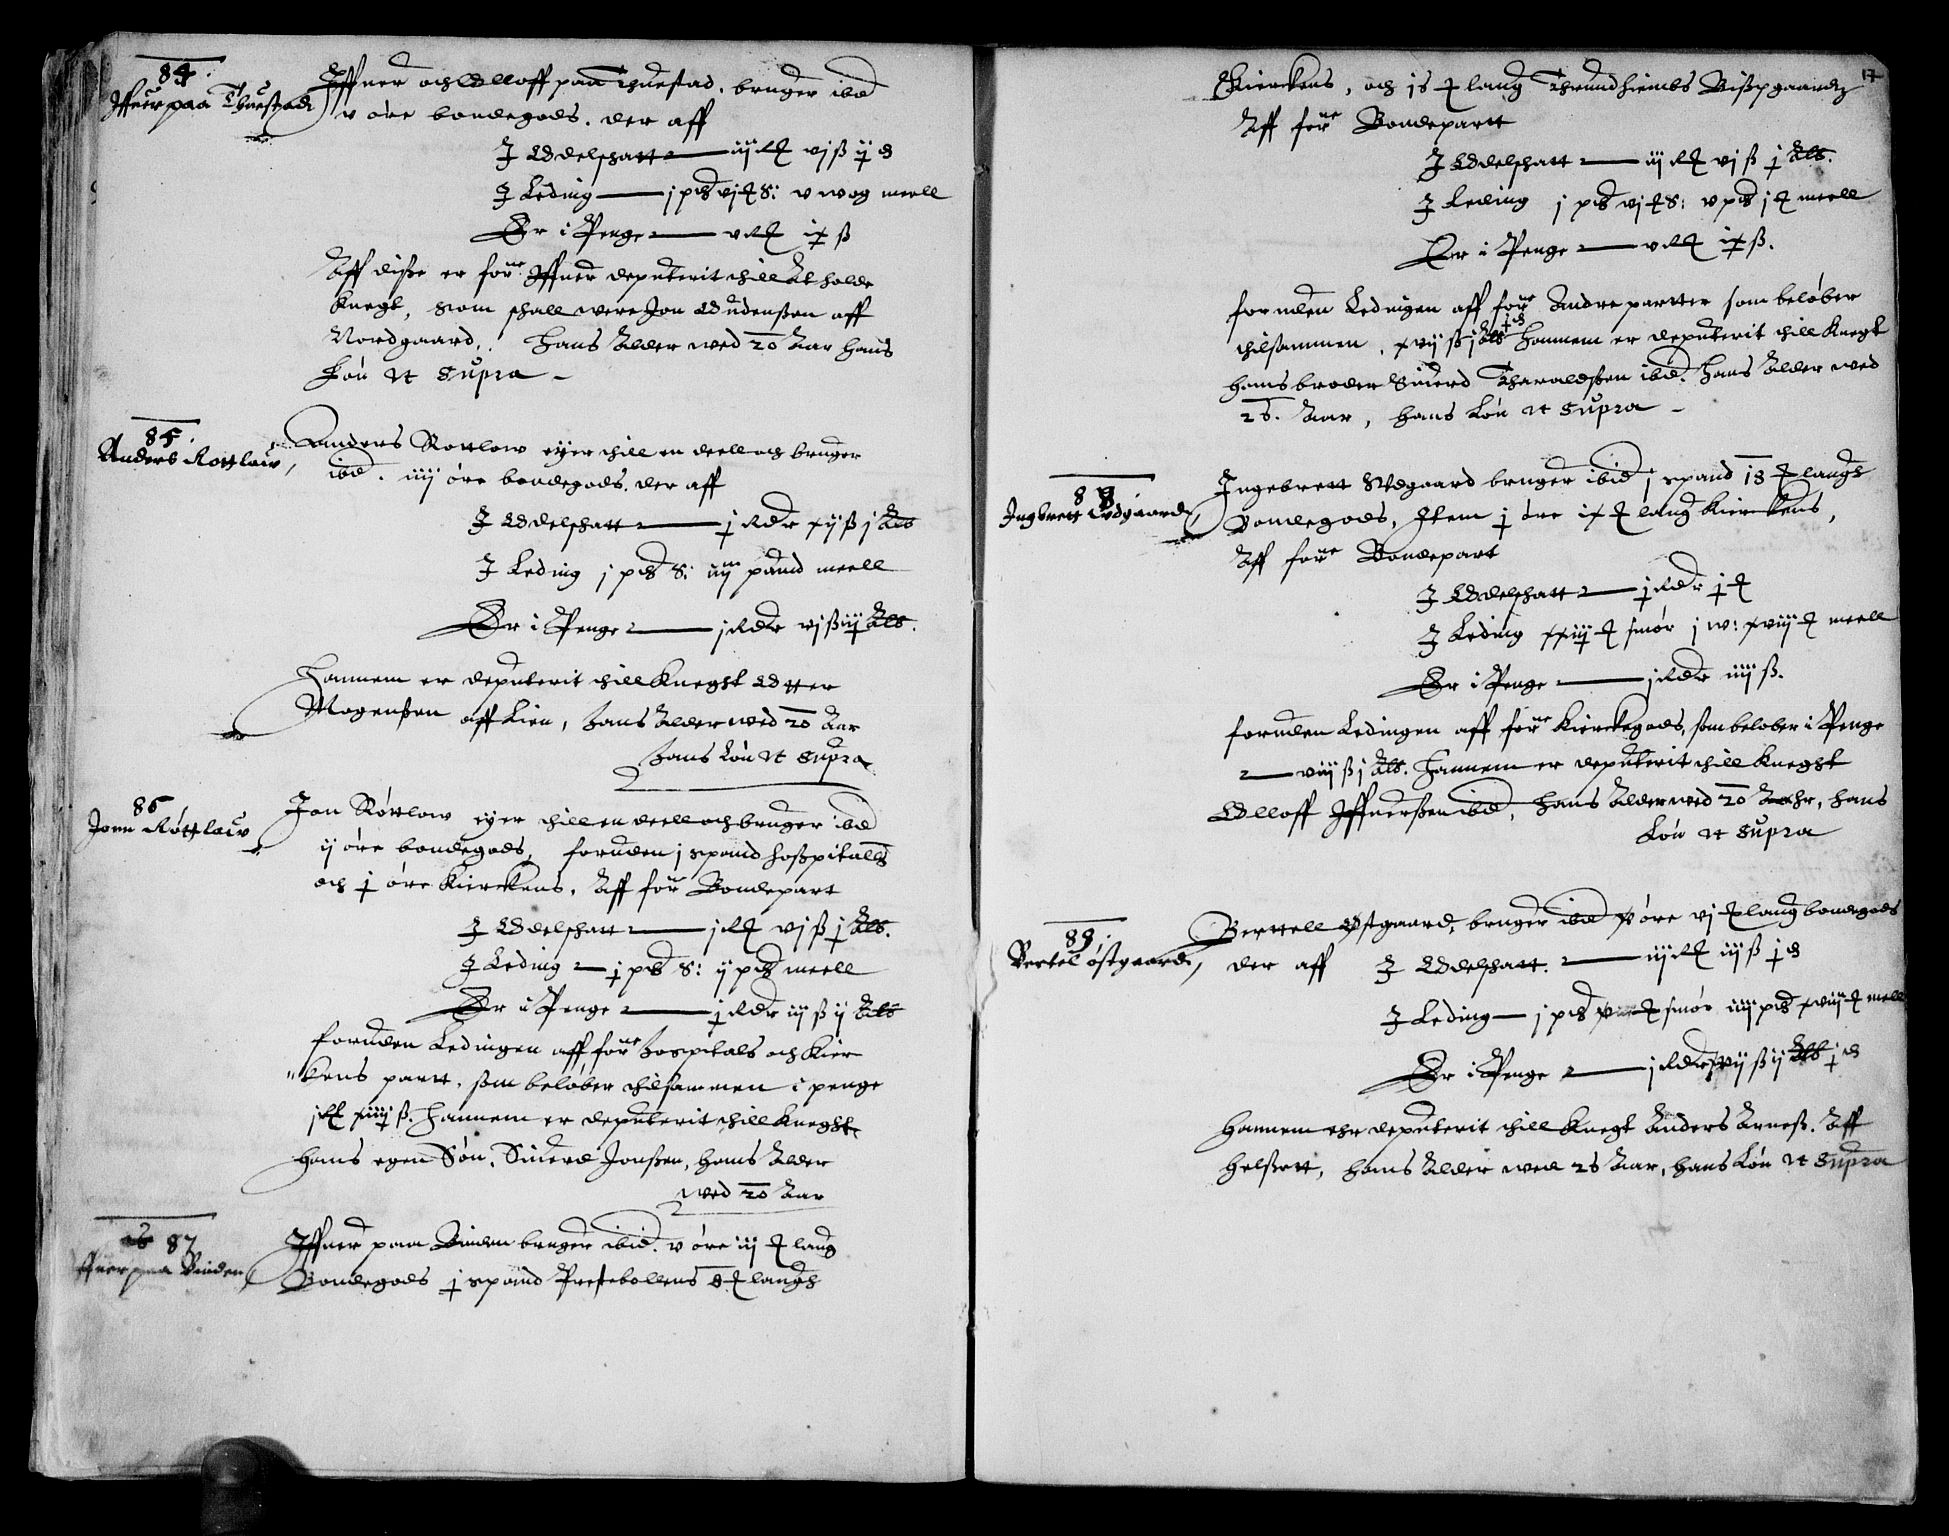 84.
Iffuer paa Thuestad
Iffuer och Olloff paa Thuestad, bruger ibid
v øre bondegods. der aff
J Oddelschatt — iij Rt vj ß ij d
J Leding — j pd vj S: v wog meell
Er i Penge — v Rt ix ß
Aff disse er forne Iffuer deputerit thill At holde
Knegt, som schall were Jon Oudenßen aff
Nordgaard, Hans Alder wed 20 Aar hans
Løn Ut Supra
85.
Anders Rottlow
Anders Rottlow eyer thill en deell och bruger
ibid. iiij øre bondegods. der aff
J Oddelschatt — j Rdr xij ß j Alb
J Leding j pd S: iiij pund meell
Er i Penge — j Rdr vj ß iij Alb.
Hannem er deputerit thill Kneght Otter
Mogenßen aff Lien, hans Alder wed 20 Aar
hans Løn Ut Supra
86
Jonn Røttlow
Jon Røttlow eyer thill en deell och bruger ibid
ij øre bondegods, foruden j spand hoßpitalls
och j øre Kierckens. Aff forne Bondepart
J Oddelschatt — j Rt vj ß j Alb.
J Leding — j pd S: ij pd meell
Er i Penge — j Rdr iij ß ij Alb
foruden Ledingen aff forne Hospitals och Kier
"kens partt, som beløber thilsammen i penge
j Rt xiiij ß. Hannem er deputerit thill Kneght
hans egen Søn, Siuerd Jonßen, hans Alder
wed 20 Aar
87
Iffuer paa Vinden
Iffuer paa Vinden bruger ibid. v øre iij lang
Bondegods j spand Prestebollens 8 langs
17
Kierckens, och 16 lang Thrundhiembs Bißpgaardz
Aff forne Bondepartt
J Oddelschatt — iij Rt vj ß j Alb.
J Leding j pd vj S: v pd j meell
Er i Penge — v Rt ix ß.
foruden Ledingen aff forne Andre partter som beløber
thilsammen, xvij ß j Alb j d Hannem er deputerit thill Knegt
hans broder Siuerd Tharaldßen ibid. hans Alder wed
26. Aar, hans Løn Ut Supra
88.
Ingbrett Øvdgaard
Ingebrett Øvdegaard bruger ibid j spand 18 langs
Bondegods, Item j øre ix lang Kierckens,
Aff forne Bondepart
J Oddelschatt — j Rdr j
J Leding xxiij smør j w: xviij meell
Er i Penge — j Rdr iiij ß.
foruden Ledingen aff forne Kierckegods, som beløber i Penge
— viij ß j Alb. Hannem er deputerit thill Kneght
Olloff Iffuerßen ibid, hans Alder wed 20 Aahr, hans
Løn Ut Supra
89.
Bertel østgaard
Berttell Østgaard, bruger ibid øre vj lang bondegods
der aff J Oddelschatt. — iij Rt iij ß j d
J Leding — j pd smør iiij pd xviij meell
Er i Penge — j Rdr ß ij Alb j d
Hannem ehr deputerit thill Knegt Anders Arneß. Aff
Helßett, hans Alder wed 26 Aar, hans Løn Ut Supra